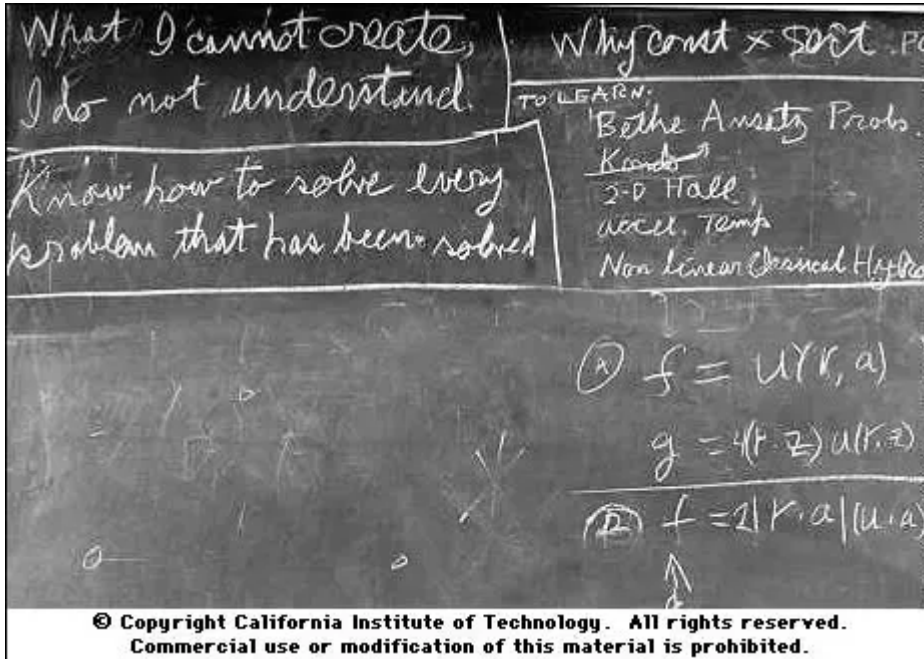 What I cannot create,
I do not understand.
Know how to solve every
problem that has been solved
Why const × sort . PO
TO LEARN.
Bethe Ansatz Probs
Kondo
2-D Hall
accel. Temp
Non linear Classical Hydro
(A) f = u(r, a)
g = 4(r·z) u(r, z)
f = 2|r·a|(u·a)
© Copyright California Institute of Technology. All rights reserved.
Commercial use or modification of this material is prohibited.